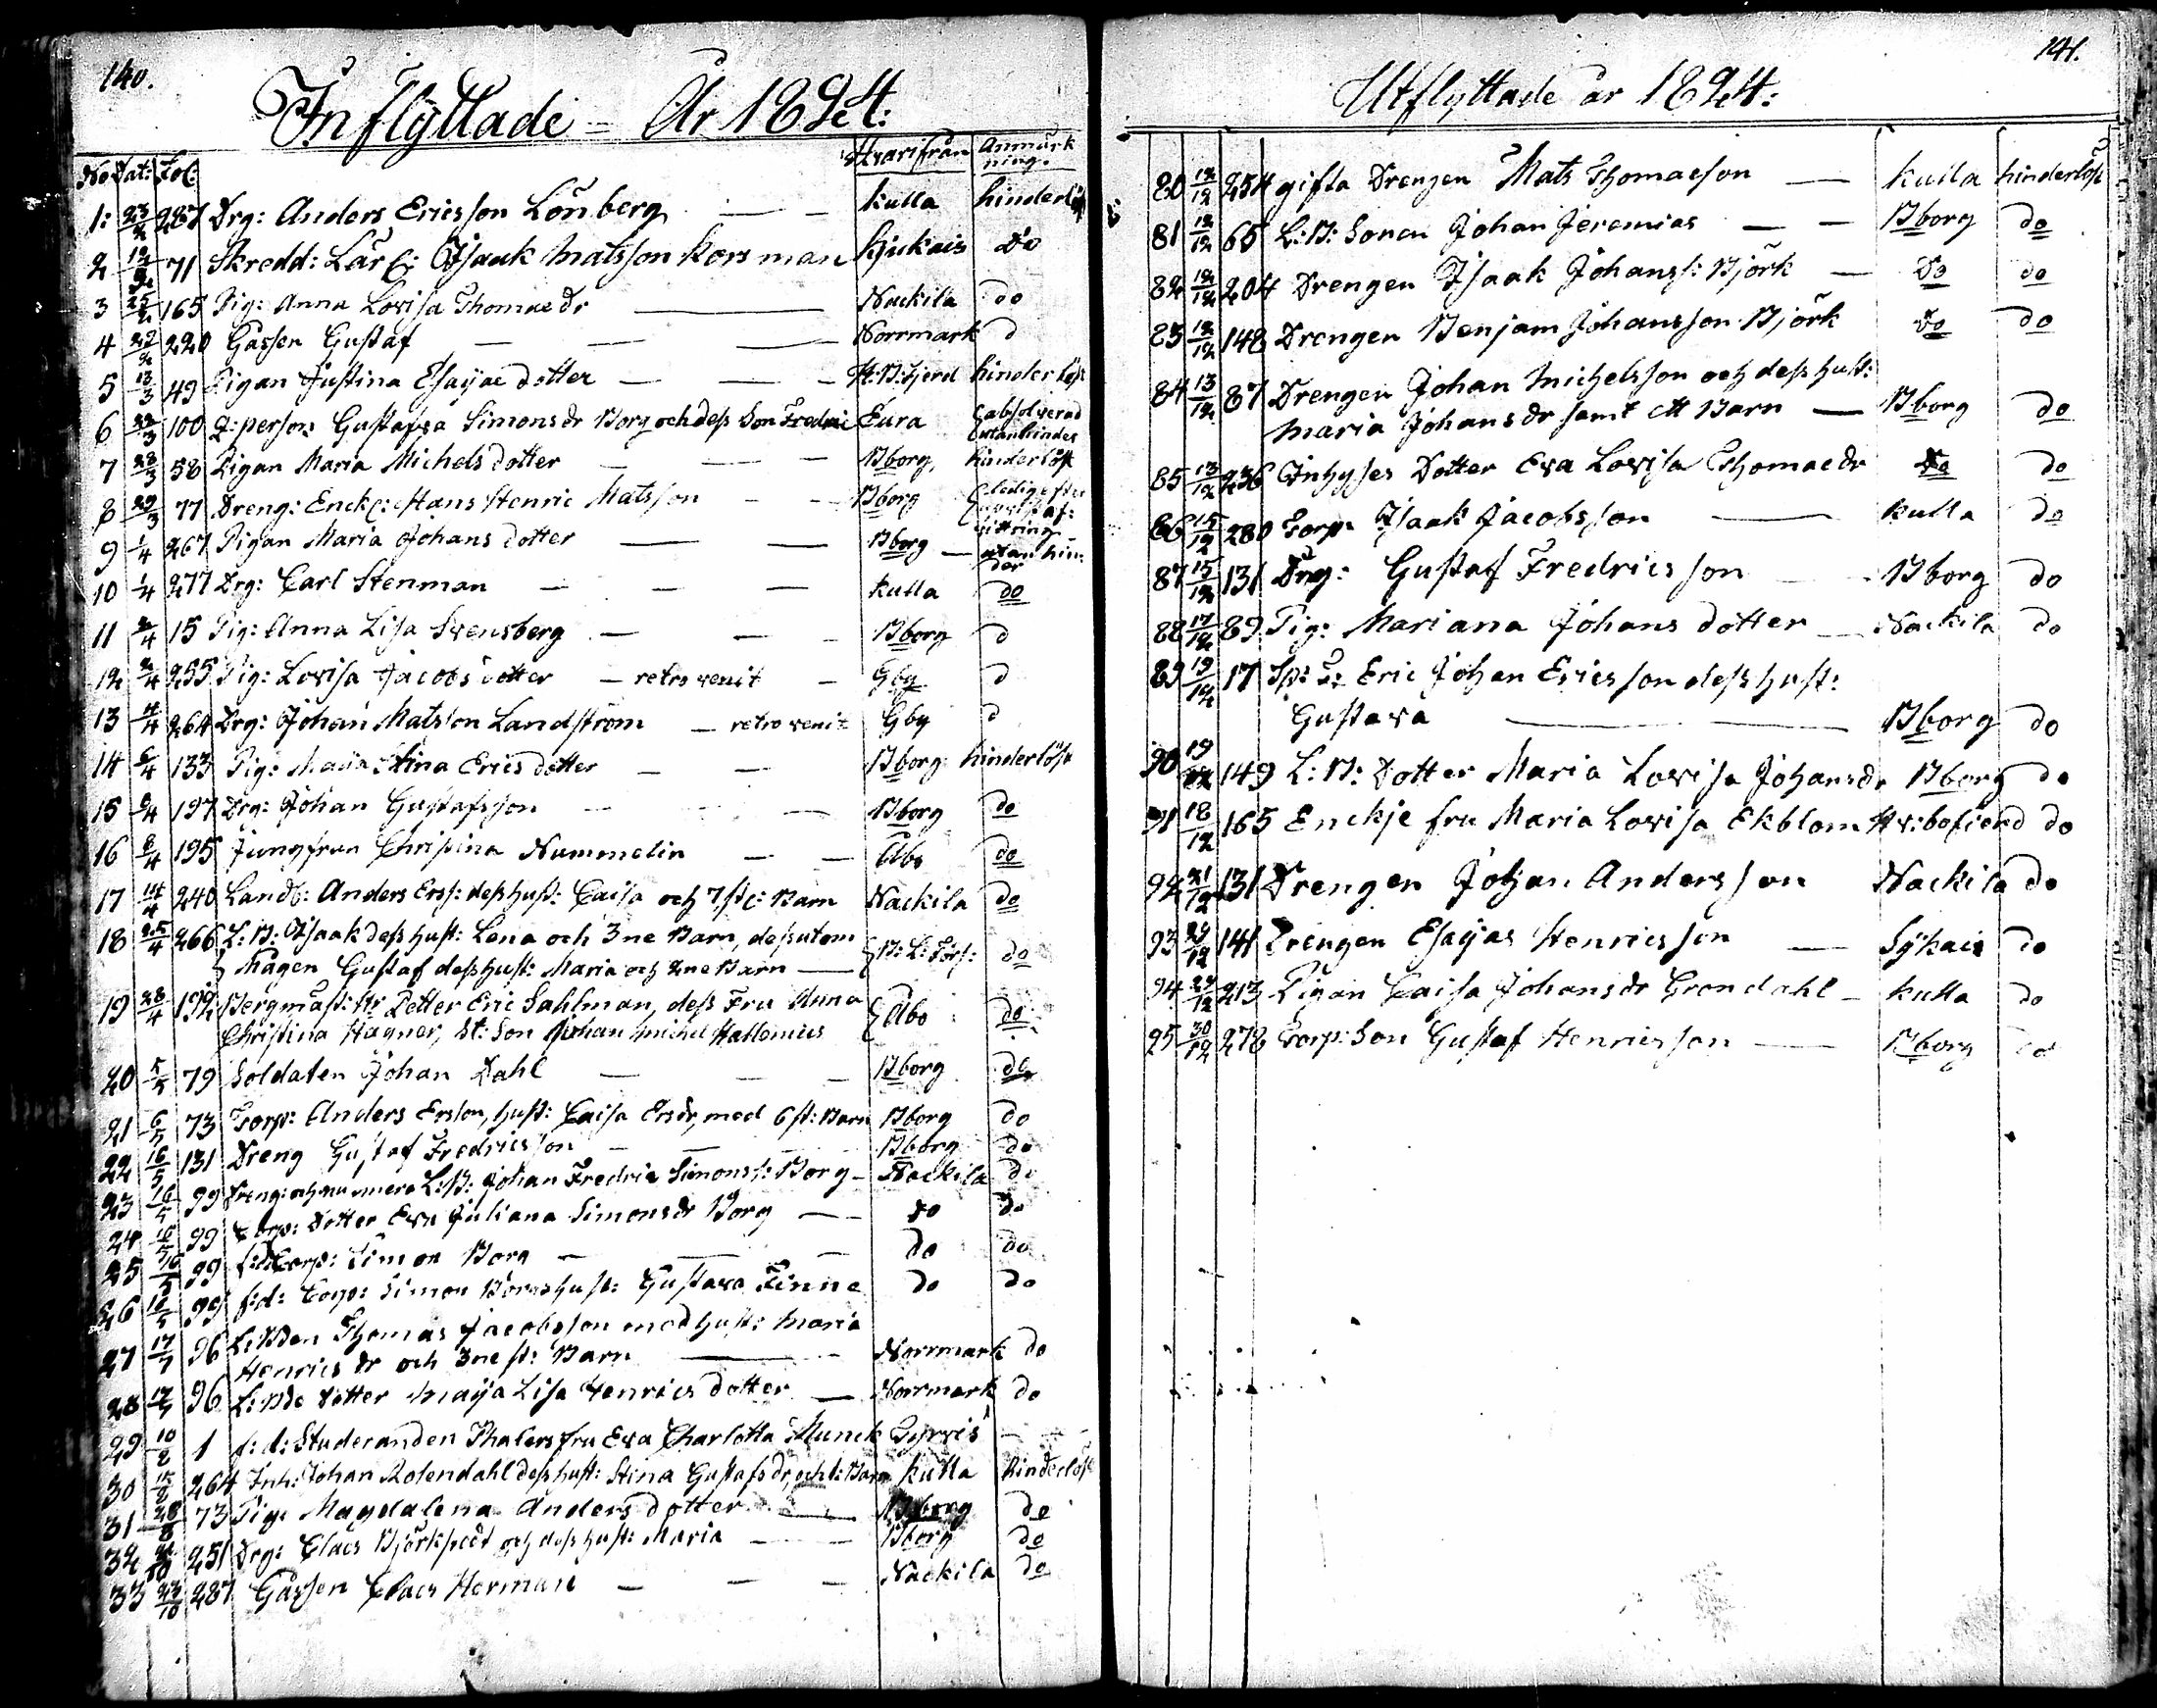 140.
Inflyttade - År 1824:
No Dat: Fol: Hvarifrån Anmärkning.
1: 23/2 287 Drg: Anders Ericsson Lönberg — kulla hinderlös
2 12/2 71 Skredd: Lärl: Isaak Matsson Korsman Kjukais Do
3 25/2 165 Pig: Anna Lovisa Thomaedr — Nackila do
4 22/2 220 Gåssen Gustaf — Norrmark d
5 13/3 49 Pigan Justina Esaijae dotter — H:B:fjerd hinderlös
6 22/3 100 q:person Gustafva Simonsdr Borg och dess Son Fredric Eura absolverad utan hinder
7 28/3 58 Pigan Maria Michelsdotter — Bborg hinderlöst
8 29/3 77 Dreng: Enkl: Hans Henric Matsson — Bborg ledig efter
9 1/4 267 Pigan Maria Johans dotter — Bborg — utan hinder
10 1/4 277 Drg: Carl Stenman — kulla do
11 2/4 15 Pig: Anna Lisa Svensberg — Bborg d
12 2/4 255 Pig: Lovisa Jacobs dotter — retro venit — Gby d
13 4/4 264 Drg: Johan Matsson Landström — retro venit Gby d
14 6/4 133 Pig: Maija Stina Erics dotter — Bborg hinderlöst
15 6/4 197 Drg: Johan Gustafsson — Bborg do
16 8/4 195 Jungfrun Christina Nummelin — Åbo do
17 14/4 240 Landb: Anders Erss: dess hust: Caisa och 7 st: Barn Nackila do
18 25/4 266 L:B: Isaak dess hust: Lena och 3ne Barn, dessutom
Mågen Gustaf dess hust: Maria och 2ne Barn — B:L:Förs: do
19 28/4 192 Bergmäst: Hr Petter Eric Sahlman, dess Fru Anna
Christina Hagner, st: Son Johan Michel Hallonius Åbo do
20 5/5 79 Soldaten Johan Dahl — Bborg do
21 6/5 73 Torp: Anders Ersson, hust: Caisa Ersdr, med 6 st: Barn Bborg do
22 16/5 131 Dreng Gustaf Fredricsson — Bborg do
23 16/5 99 Dreng: och numera L:B: Johan Fredric Simonss: Borg — Nackila do
24 16/5 99 Torp: Dotter Eva Juliana Simonsdr Borg — Do do
25 16/5 99 f:d: Torp: Simon Borg — do do
26 16/5 99 f:d: Torp: Simon Borgs hust: Gustava Finne do do
27 17/7 96 L:Bden Thomas Jacobsson med hust: Maria
Henricsdr och 3ne st: Barn — Norrmark do
28 17/7 96 L:Bde dotter Maija Lisa Henrics dotter — Norrmark do
29 10/8 1 f:d: Studeranden Thalers fru Eva Charlotta Munck Tyrvis
30 15/8 264 Inh: Johan Rosendahl dess hust: Stina Gustafsdr, och 1: Barn kulla hinderlöst
31 28/8 73 Pig: Magdalena Anders dotter — Bborg do
32 251 Drg: Claes Björkstedt och dess hust: Maria — Bborg do
33 23/10 287 Gåssen Claes Herman — Nackila do
141.
Utflyttade år 1824:
80 12/12 254 gifta Drengen Mats Thomasson — kulla hinderlöst
81 12/12 65 L:B: Sonen Johan Jeremias — Bborg do
82 12/12 204 Drengen Isaak Johanss: Björk — Do do
83 12/12 148 Drengen Benjam Johansson Björk Do do
84 13/12 87 Drengen Johan Michelsson och dess hust:
Maria Johansdr samt ett Barn — Bborg do
85 13/12 236 Inhyses Dotter Eva Lovisa Thomaedr Do do
86 15/12 280 Torp: Isaak Jacobsson — kulla do
87 15/12 131 Drg: Gustaf Fredricsson — Bborg do
88 17/12 89 Pig: Mariana Johans dotter — Nackila do
89 19/12 17 Eric Johan Ericsson dess hust:
Gustava — Bborg do
90 19/12 149 L:B: Dotter Maria Lovisa Johansdr Bborg do
91 18/12 165 Enckje fru Maria Lovisa Ekblom Hv:bofierd do
92 21/12 131 Drengen Johan Andersson Nackila do
93 29/12 141 Drengen Esaijas Henricsson — Sykais do
94 29/12 213 Pigan Caisa Johansdr Grondahl — kulla do
95 30/12 278 Torp: Son Gustaf Henricsson — Bborg do